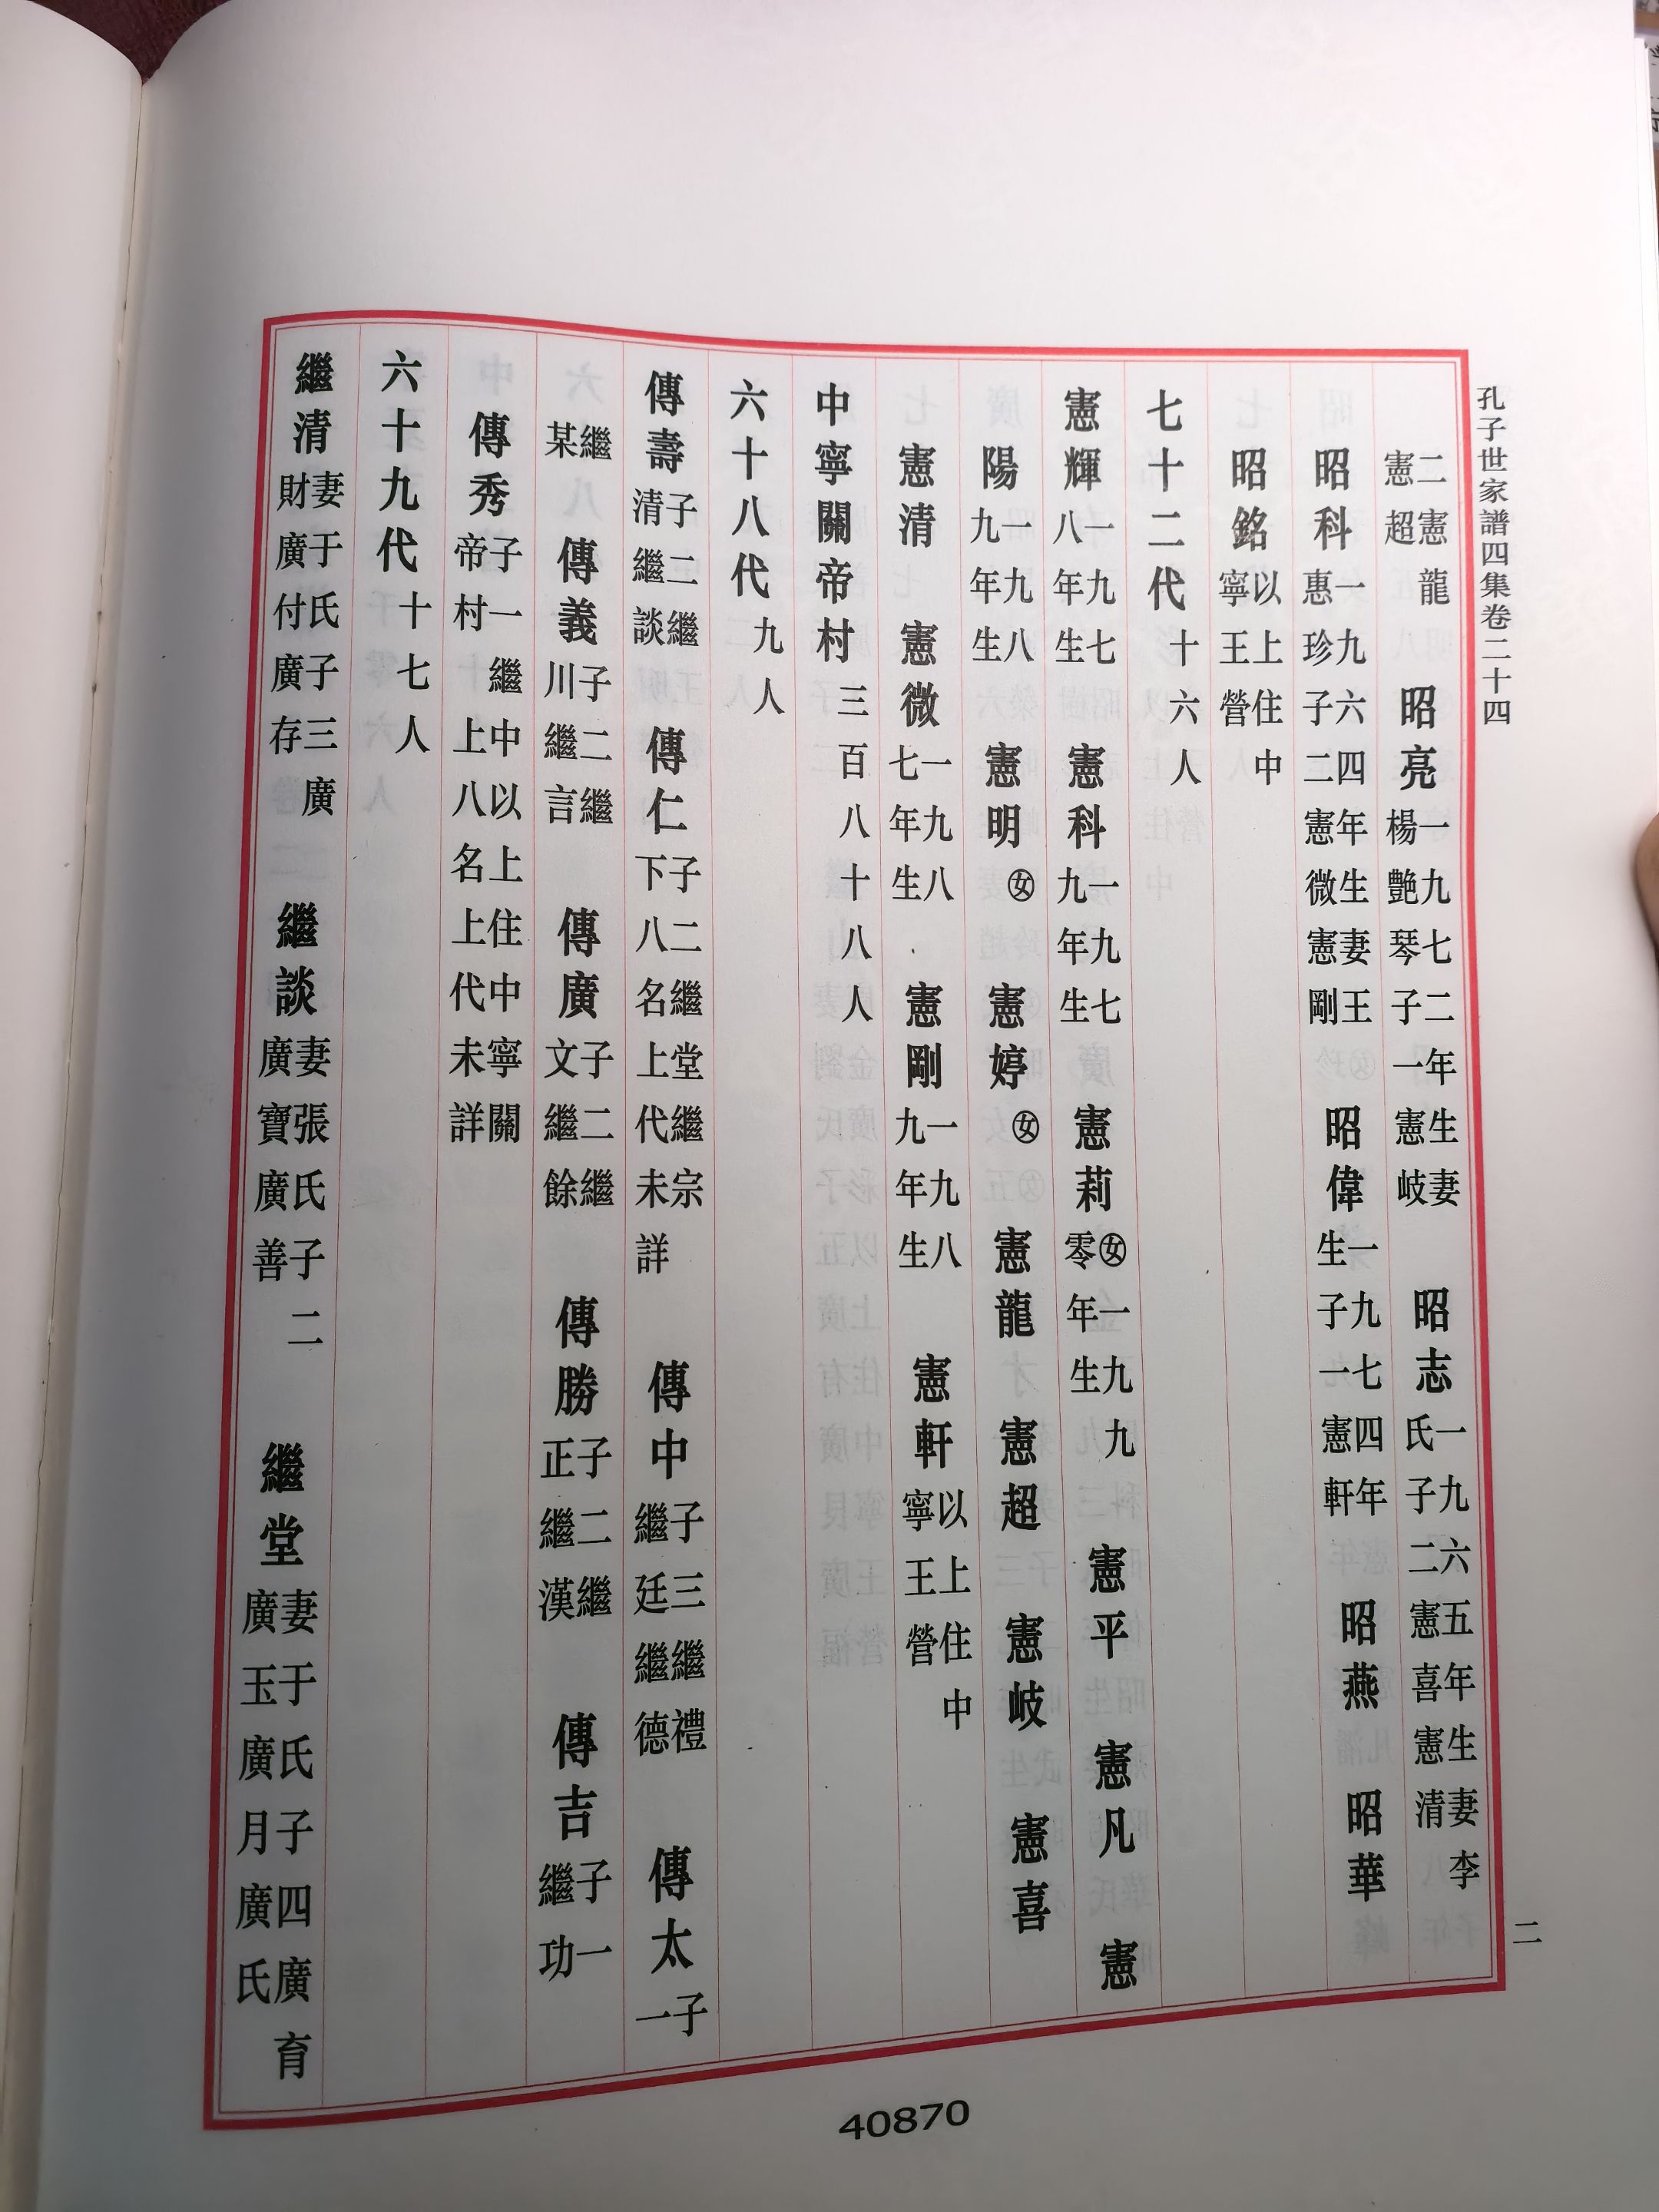 孔子世家譜四集卷二十四
二憲龍憲超　昭亮一九七二年生妻楊艷琴子一憲岐　昭志一九六五年生妻李氏子二憲喜憲清
昭科一九六四年生妻王惠珍子二憲微憲剛　昭偉一九七四年生子一憲軒　昭燕　昭華
昭銘以上住中寧王營
七十二代十六人
憲輝一九七八年生　憲科一九七九年生　憲莉㊛一九九零年生　憲平　憲凡　憲
陽一九八九年生　憲明㊛　憲婷㊛　憲龍　憲超　憲岐　憲喜
憲清　憲微一九八七年生　憲剛一九八九年生　憲軒以上住中寧王營
中寧關帝村三百八十八人
六十八代九人
傳壽子二繼清繼談　傳仁子二繼堂繼宗下八名上代未詳　傳中子三繼禮繼廷繼德　傳太子一
繼某　傳義子二繼川繼言　傳廣子二繼文繼餘　傳勝子二繼正繼漢　傳吉子一繼功
傳秀子一繼中以上住中寧關帝村上八名上代未詳
六十九代十七人
繼清妻于氏子三廣財廣付廣存　繼談妻張氏子二廣寶廣善　繼堂妻于氏子四廣育廣玉廣月廣氏
二
40870